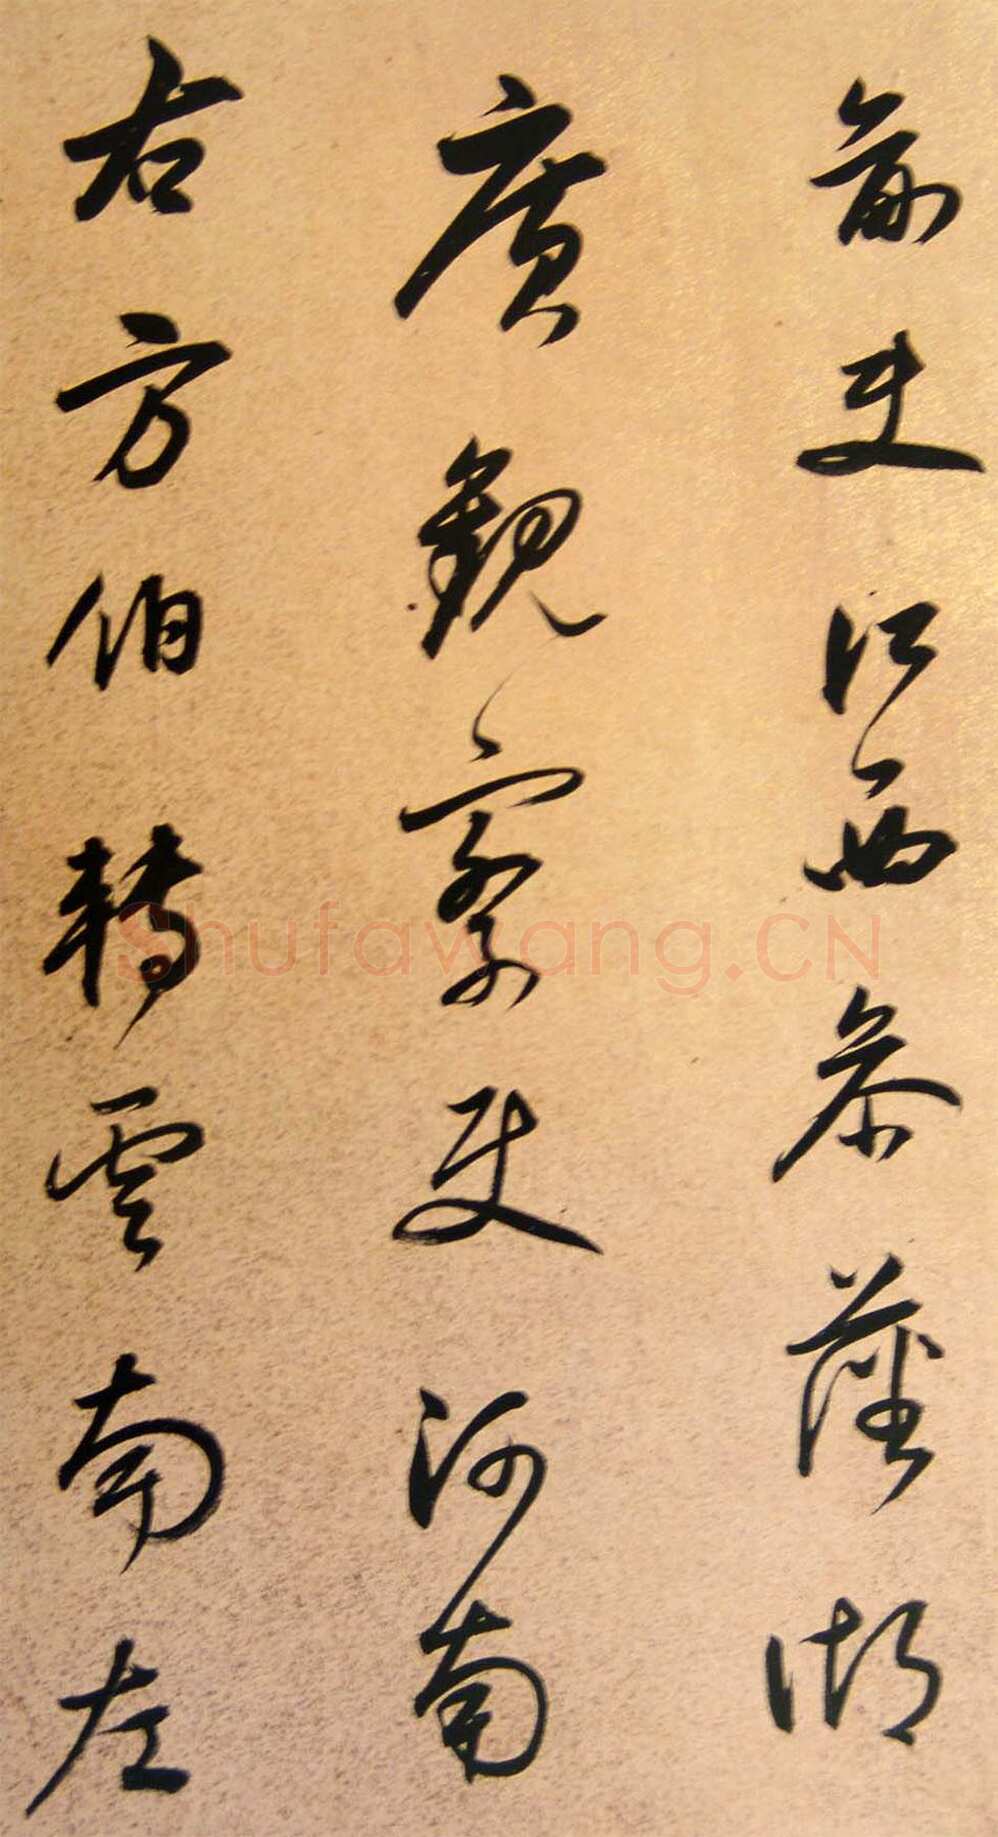 命吏江西參藩湖
廣觀察使河南
右方伯轉雲南左
Shufawang.CN